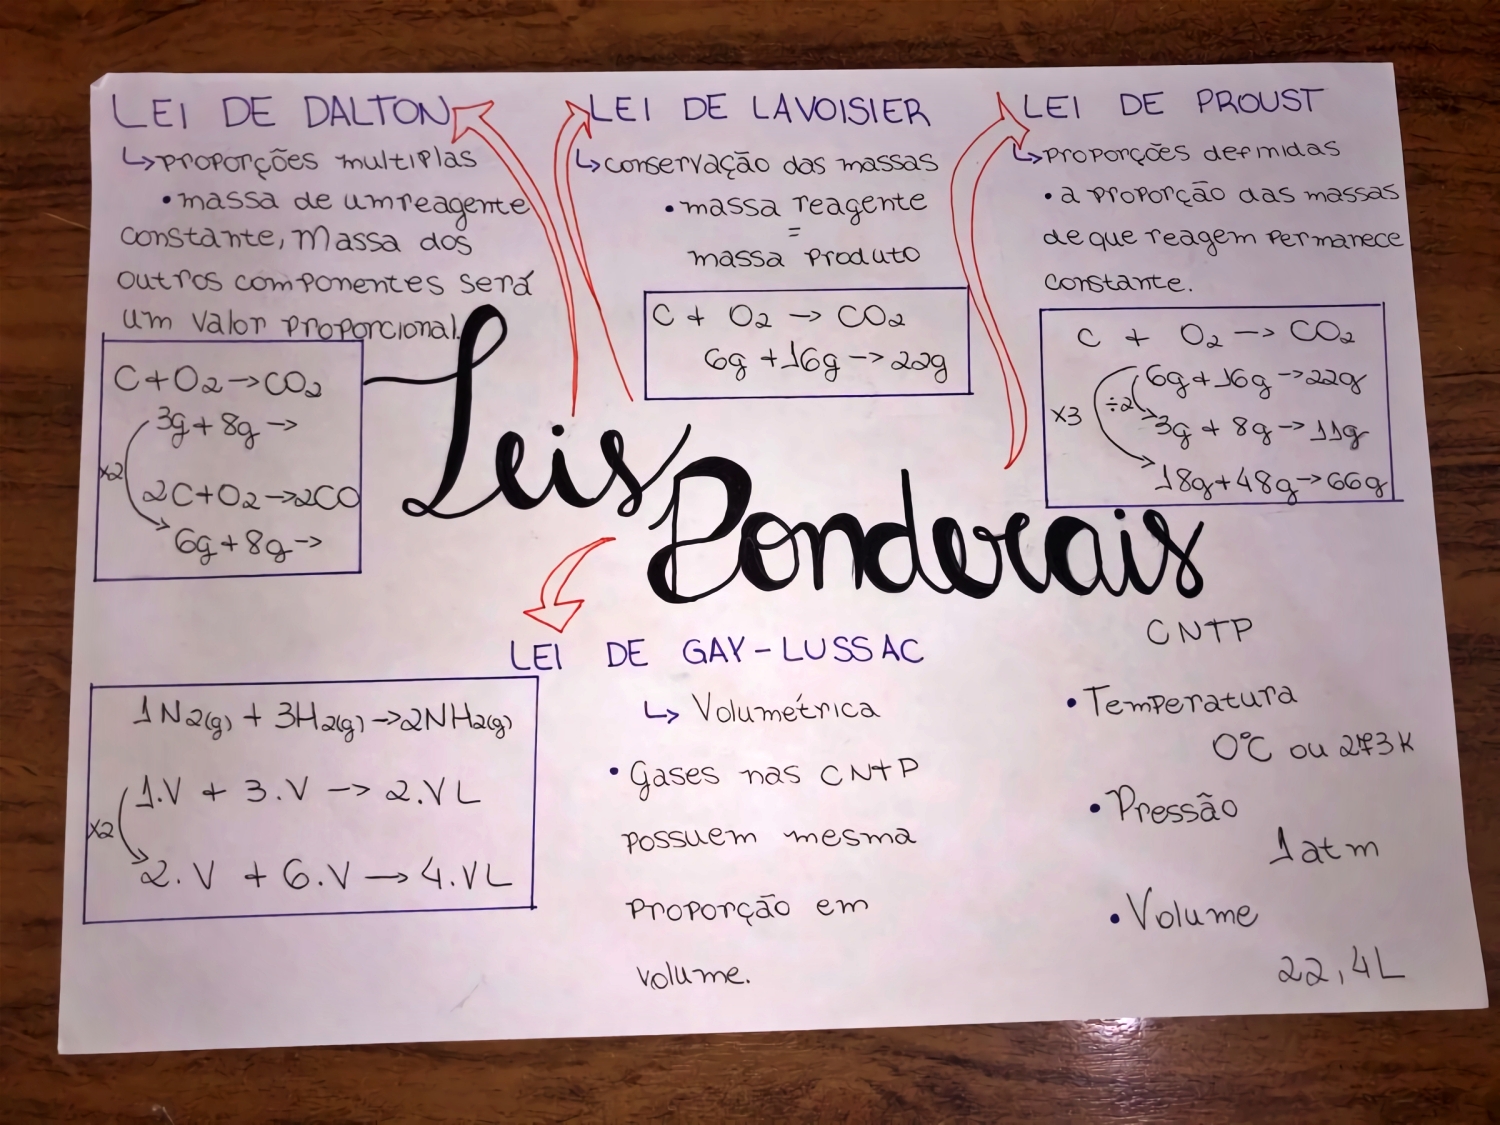 LEI DE DALTON
↳ proporções multiplas
• massa de um reagente
constante, massa dos
outros componentes será
um valor proporcional.
C + O2 → CO2
3g + 8g →
x2
2C + O2 → 2CO
6g + 8g →
LEI DE LAVOISIER
↳ conservação das massas
• massa reagente
=
massa produto
C + O2 → CO2
6g + 16g → 22g
LEI DE PROUST
↳ proporções definidas
• a proporção das massas
de que reagem permanece
constante.
C + O2 → CO2
6g + 16g → 22g
x3 ÷2
3g + 8g → 11g
18g + 48g → 66g
Leis
Ponderais
LEI DE GAY-LUSSAC
↳ Volumétrica
• Gases nas CNTP
possuem mesma
proporção em
volume.
1N2(g) + 3H2(g) → 2NH2(g)
1.V + 3.V → 2.VL
x2
2.V + 6.V → 4.VL
CNTP
• Temperatura
0°C ou 273K
• Pressão
1atm
• Volume
22,4L